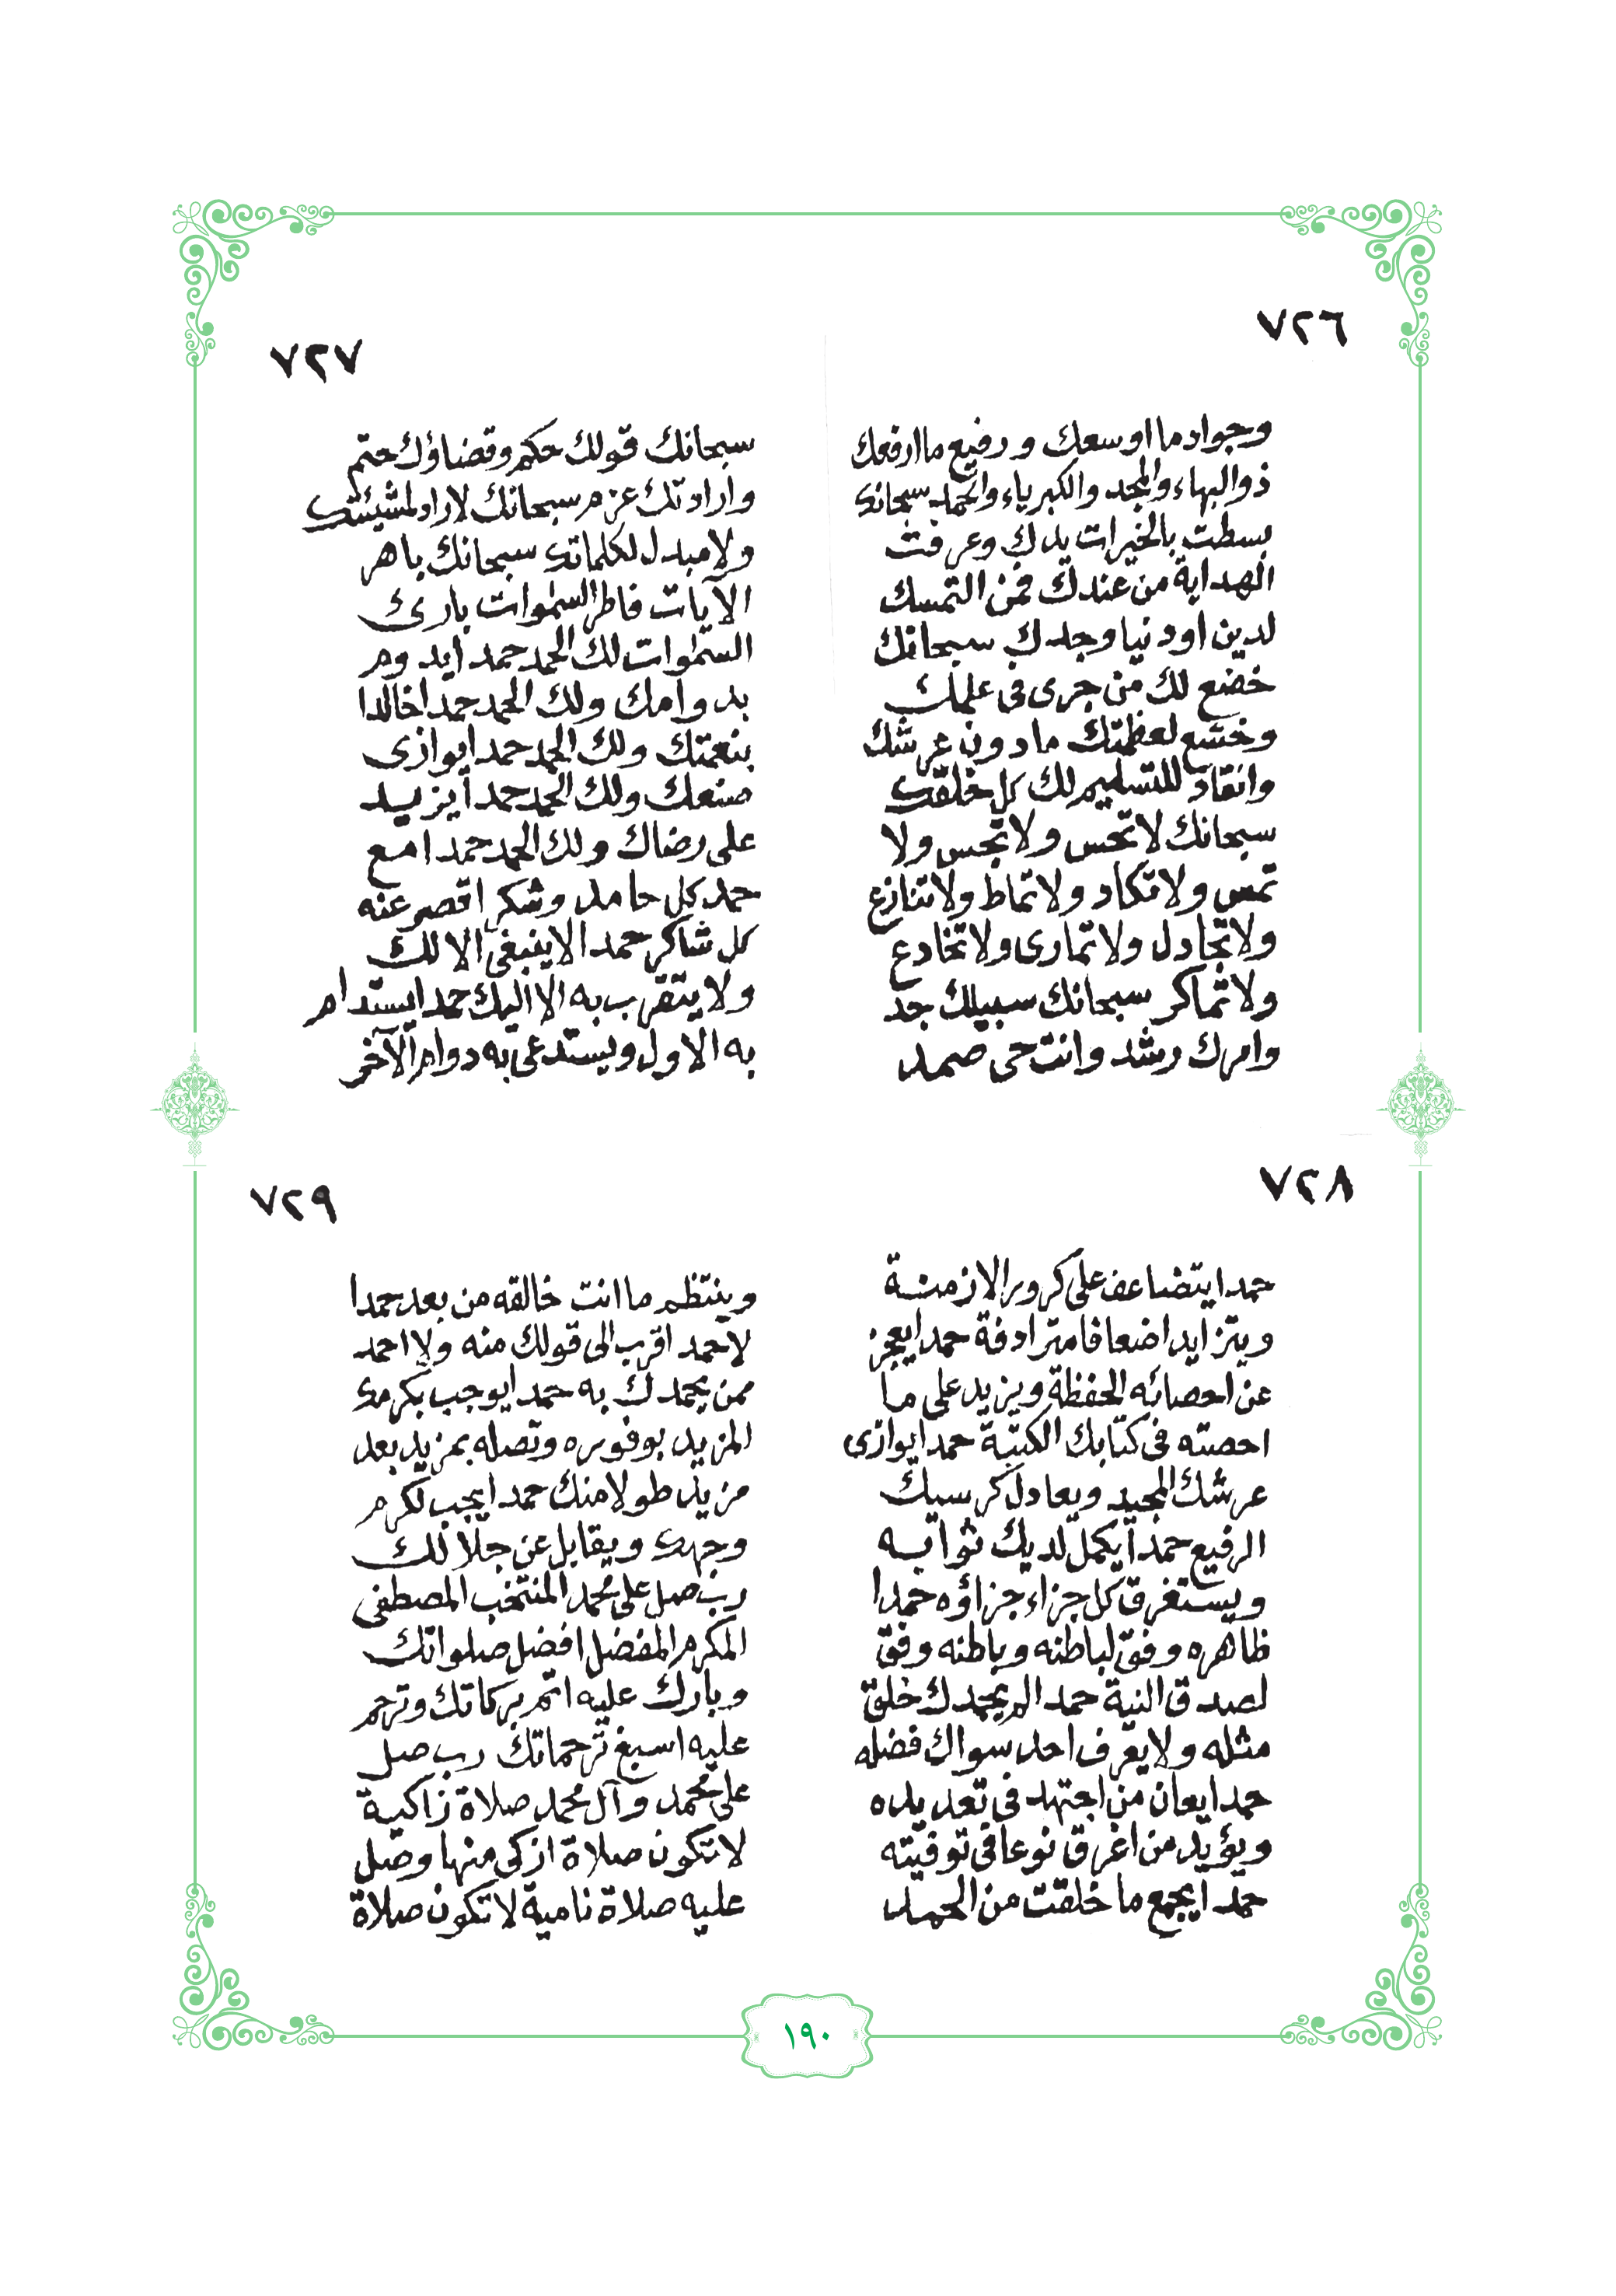 ٧٢٦
وجواد ما اوسعك ورفيع ما ارفعك
ذوالبهاء والمجد والكبرياء والحمد سبحانك
بسطت بالخيرات يدك وعرفت
الهداية من عندك فمن التمسك
لدين اودنيا وجدك سبحانك
خضع لك من جرى فى علمك
وخشع لعظمتك مادون عرشك
وانقاد للتسليم لك كل خلقك
سبحانك لاتحس ولاتجس ولا
تمس ولاتكاد ولاتماط ولاتنازع
ولاتجادل ولاتمارى ولاتخادع
ولاتماكر سبحانك سبيلك جدد
وامرك رشد وانت حى صمد
٧٢٧
سبحانك قولك حكم وقضاؤك حتم
وارادتك عزم سبحانك لاراد لمشيئتك
ولا مبدل لكلماتك سبحانك باهر
الآيات فاطر السموات بارىء
السموات لك الحمد حمدا يدوم
بدوامك ولك الحمد حمدا خالدا
بنعمتك ولك الحمد حمدا يوازى
صنعك ولك الحمد حمدا يزيد
على رضاك ولك الحمد حمدا مع
حمد كل حامد وشكرا قصر عنه
كل شاكر حمدا لاينبغى الا لك
ولا يتقرب به الا اليك حمدا يستدام
به الاول ويستدعى به دوام الآخر
٧٢٨
حمدا يتضاعف على كرور الازمنة
ويتزايد اضعافا مترادفة حمدا يعجز
عن احصائه الحفظة ويزيد على ما
احصته فى كتابك الكتبة حمدا يوازى
عرشك المجيد ويعادل كرسيك
الرفيع حمدا يكمل لديك ثوابه
ويستغرق كل جزاء جزاؤه حمدا
ظاهره وفق لباطنه وباطنه وفق
لصدق النية حمدا لم يحمدك خلق
مثله ولايعرف احد سواك فضله
حمدا يعان من اجتهد فى تعديده
ويؤيد من اغرق نوعا فى توفيته
حمدا يجمع ما خلقت من الحمد
٧٢٩
وينتظم ما انت خالقه من بعد حمدا
لاحمد اقرب الى قولك منه ولا احمد
ممن يحمدك به حمدا يوجب بكرمك
المزيد بوفوره وتصله بمزيد بعد
مزيد طولا منك حمدا يجب لكرم
وجهك ويقابل عن جلالك
رب صل على محمد المنتخب المصطفى
المكرم المفضل افضل صلواتك
وبارك عليه اتم بركاتك وترحم
عليه اسبغ ترحماتك رب صل
على محمد وآل محمد صلاة زاكية
لاتكون صلاة ازكى منها وصل
عليه صلاة نامية لاتكون صلاة
١٩٠